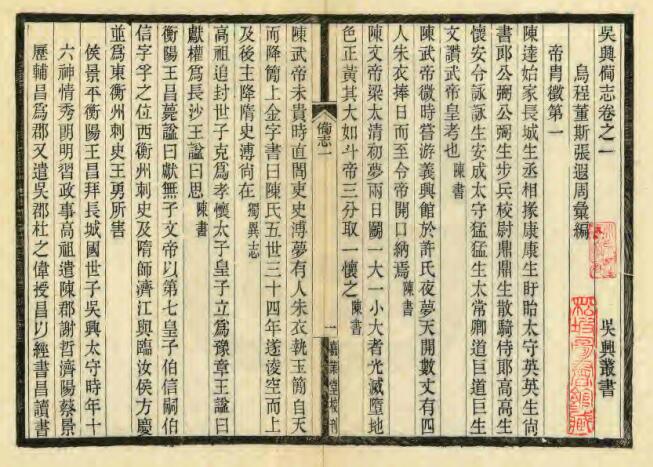 吳興備志卷之一　吳興叢書
烏程董斯張遐周彙編
帝胄徵第一
陳達始家長城生丞相掾康康生盱眙太守英英生尚
書郎公弼公弼生步兵校尉鼎鼎生散騎侍郎高高生
懷安令詠詠生安成太守猛猛生太常卿道巨道巨生
文讚武帝皇考也陳書
陳武帝微時嘗游義興館於許氏夜夢天開數丈有四
人朱衣捧日而至令帝開口納焉陳書
陳文帝梁太清初夢兩日鬭一大一小大者光滅墮地
色正黃其大如斗帝三分取一懷之陳書
備志一
一
嘉業堂校刊
陳武帝未貴時直閤吏史溥夢有人朱衣執玉簡自天
而降簡上金字書曰陳氏五世三十四年遂淩空而上
及後主降隋史溥尚在獨異志
高祖追封世子克爲孝懷太子皇子立爲豫章王諡曰
獻權爲長沙王諡曰思陳書
衡陽王昌薨諡曰獻無子文帝以第七皇子伯信嗣伯
信字孚之位西衡州刺史及隋師濟江與臨汝侯方慶
並爲東衡州刺史王勇所害
侯景平衡陽王昌拜長城國世子吳興太守時年十
六神情秀朗明習政事高祖遣陳郡謝哲濟陽蔡景
歷輔昌爲郡又遣吳郡杜之偉授昌以經書昌讀書